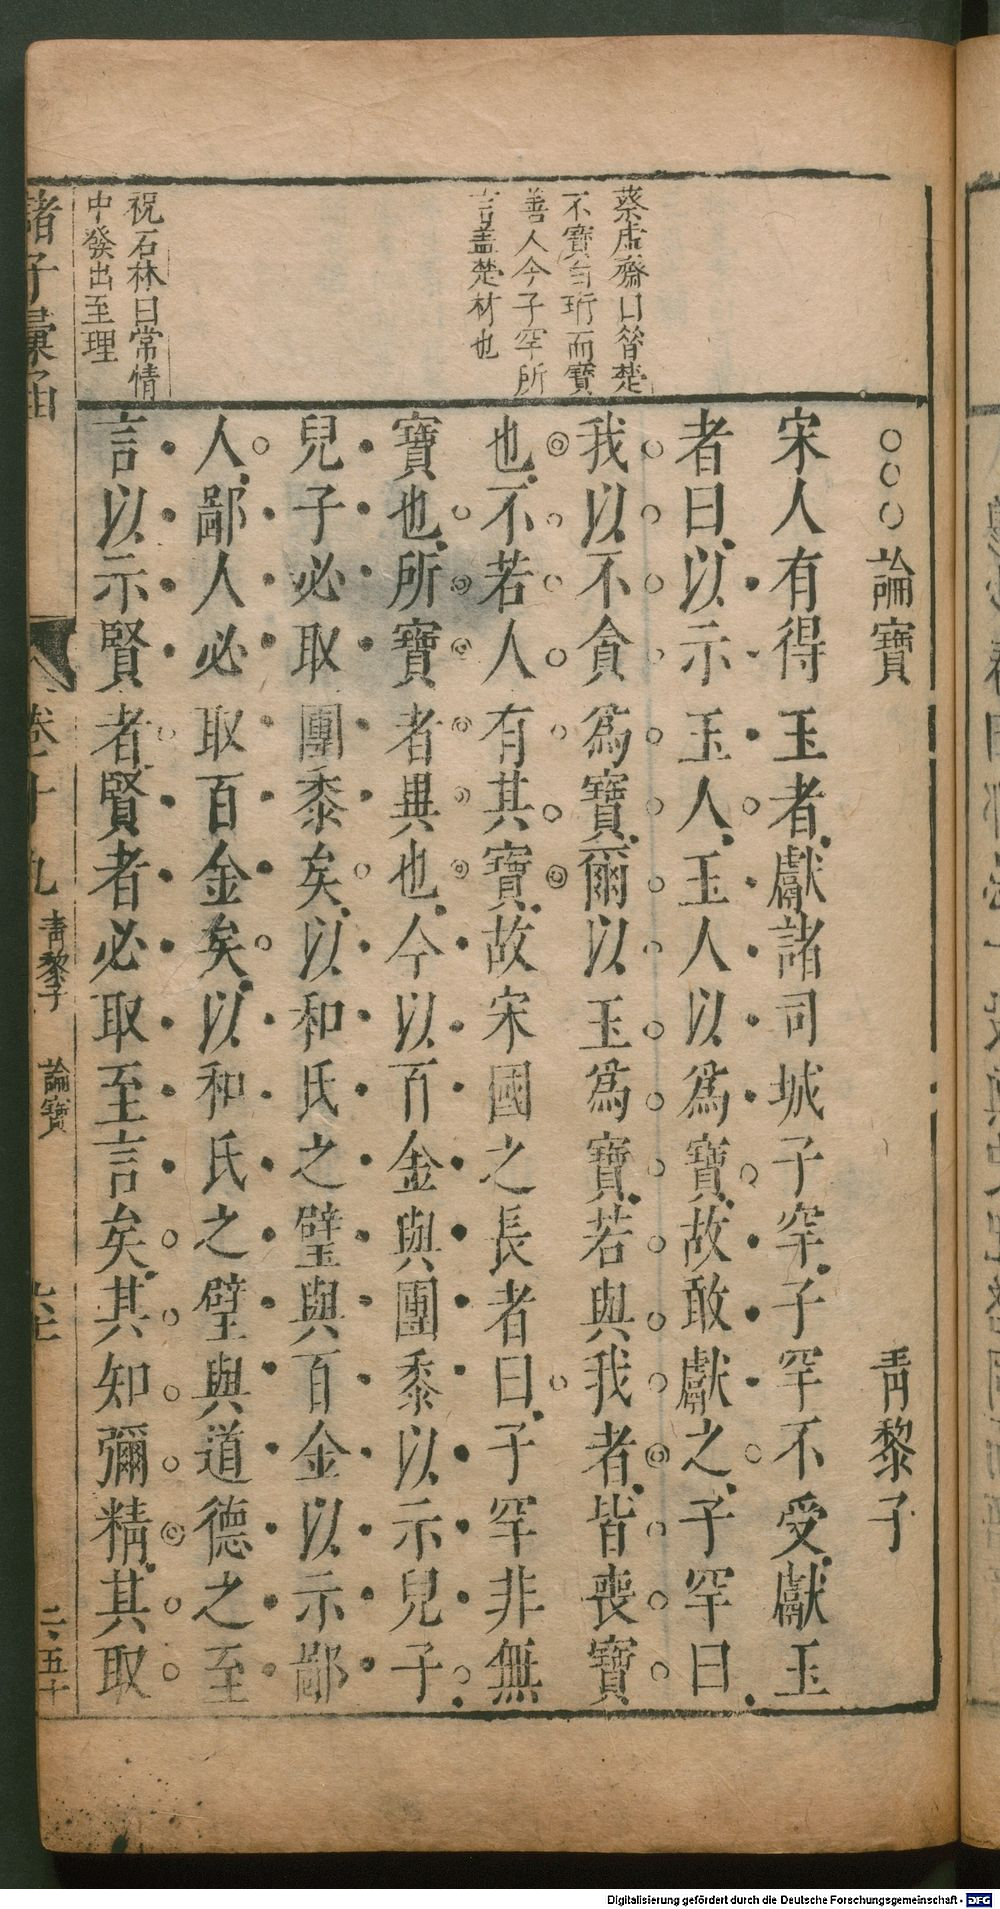 蔡虛齋曰昔楚
不寶白珩而寶
善人今子罕所
言盖楚材也
祝石林曰常情
中發出至理
○○○論寶 青黎子
宋人有得玉者獻諸司城子罕子罕不受獻玉
者曰以示玉人玉人以爲寶故敢獻之子罕曰
我以不貪爲寶爾以玉爲寶若與我者皆喪寶
也不若人有其寶故宋國之長者曰子罕非無
寶也所寶者異也今以百金與團黍以示兒子
兒子必取團黍矣以和氏之璧與百金以示鄙
人鄙人必取百金矣以和氏之璧與道德之至
言以示賢者賢者必取至言矣其知彌精其取
諸子彙函
卷十九 青黎子 論寶
二五十
Digitalisierung gefördert durch die Deutsche Forschungsgemeinschaft - DFG